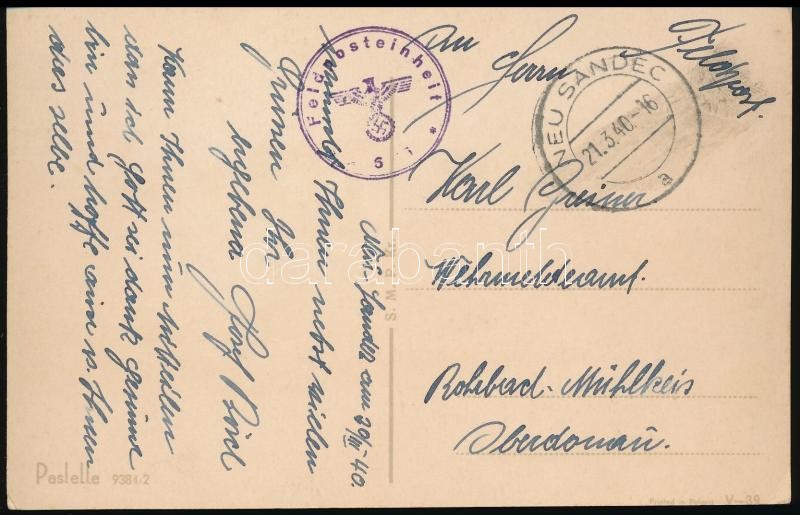 Feldpost.
An
Herrn
Karl Greiner.
Wehrmeldeamt.
Rohrbach-Mühlkreis
Oberdonau.
NEU SANDEC
21.3.40-16
a
Feldpoststeinheit
S
Neu Sandez am 20/III 40.
Ihnen nebst vielen
Grüssen Ihr
ergebend Josef
Kann Ihnen nun mitteilen
das ich Gott sei dank gesund
bin und hoffe auch v. Ihnen
das selbe.
S. M. P. Kr.
Pastelle 9384/2
Printed in Poland V-39
darabanth